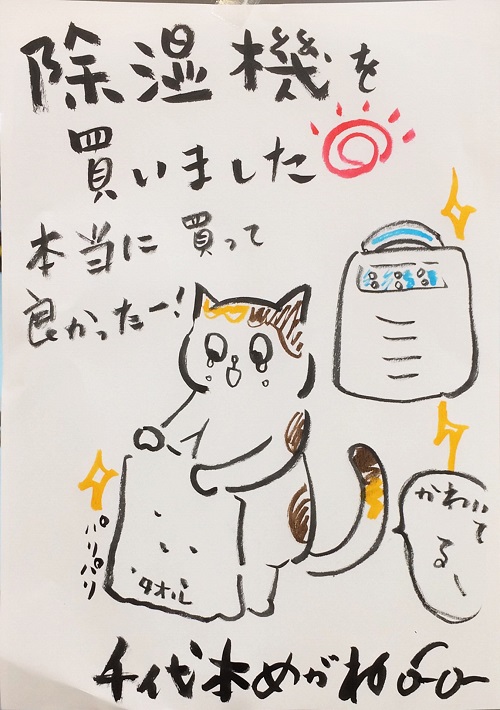 除湿機を
買いました
本当に買って
良かったー!
かわいて
る~
パリパリ
タオル
千代木めがね